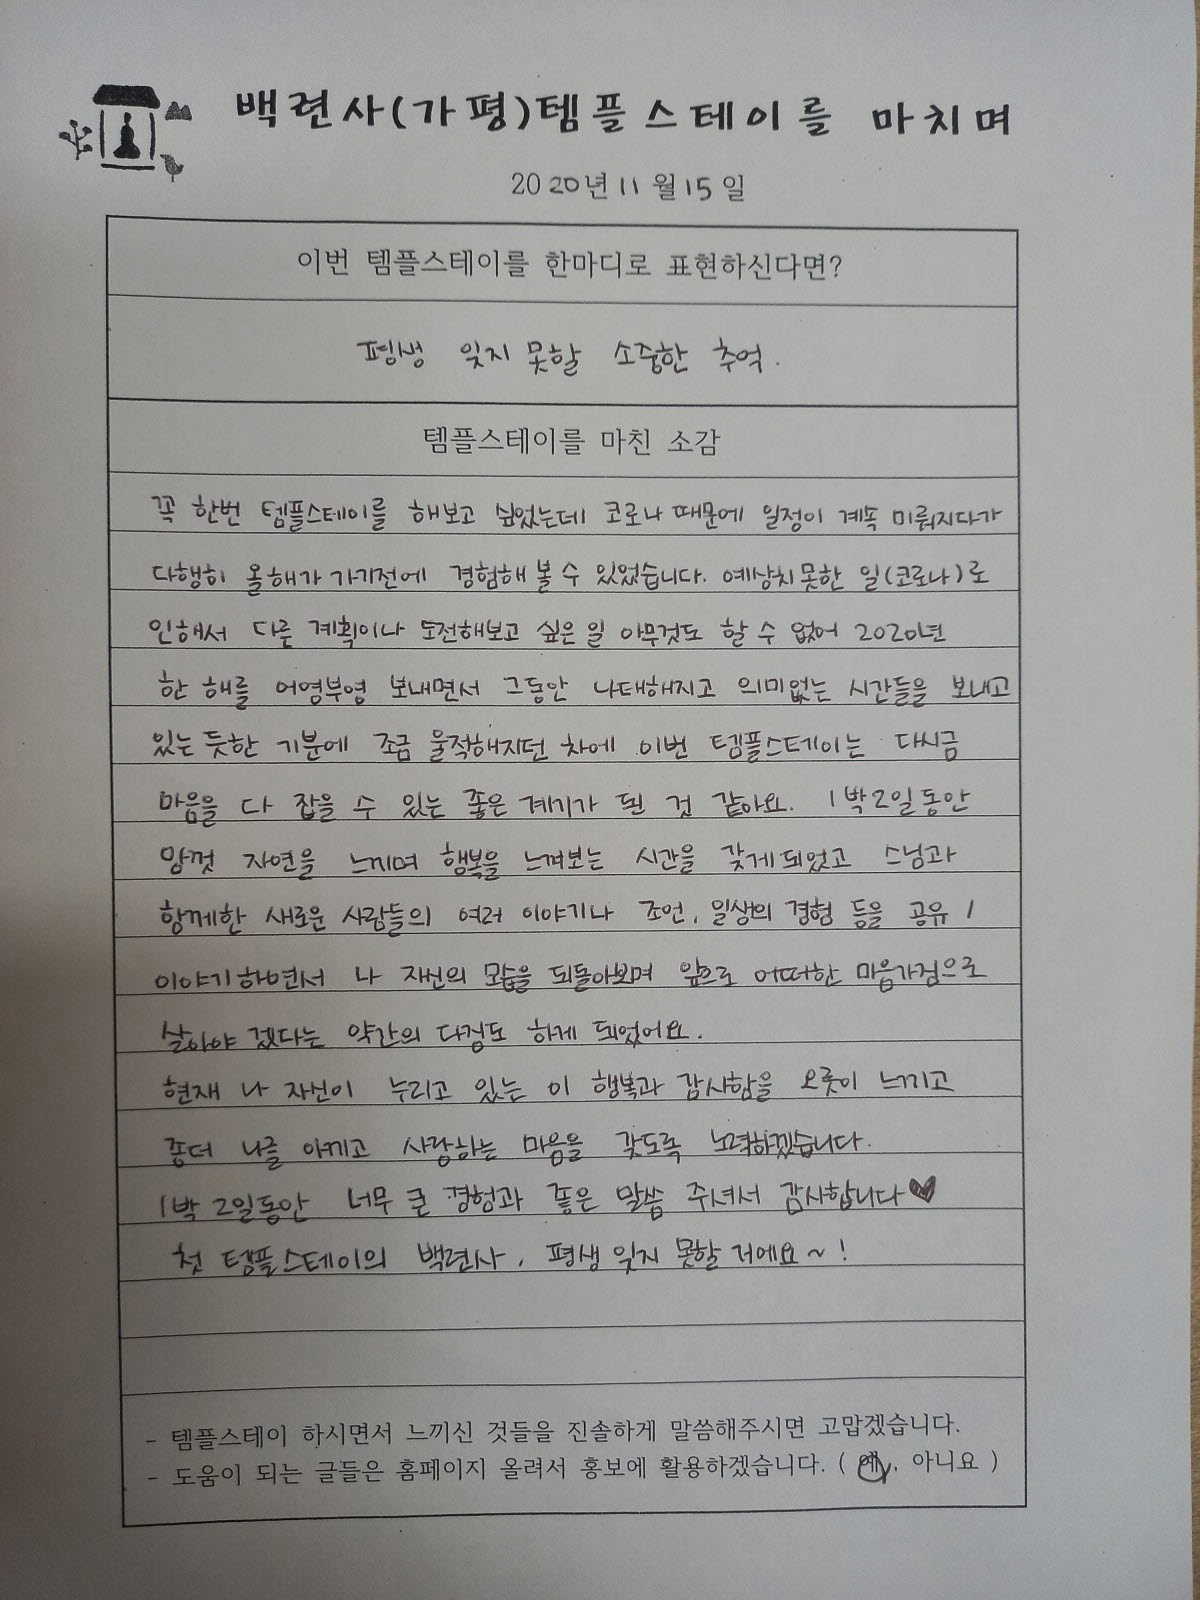 백련사(가평)템플스테이를 마치며
2020년 11월 15일
이번 템플스테이를 한마디로 표현하신다면?
평생 잊지 못할 소중한 추억.
템플스테이를 마친 소감
꼭 한번 템플스테이를 해보고 싶었는데 코로나 때문에 일정이 계속 미뤄지다가
다행히 올해가 가기전에 경험해 볼 수 있었습니다. 예상치 못한 일(코로나)로
인해서 다른 계획이나 도전해보고 싶은 일 아무것도 할 수 없어 2020년
한 해를 어영부영 보내면서 그동안 나태해지고 의미없는 시간들을 보내고
있는 듯한 기분에 조금 울적해지던 차에 이번 템플스테이는 다시금
마음을 다 잡을 수 있는 좋은 계기가 된 것 같아요. 1박2일동안
맘껏 자연을 느끼며 행복을 느껴보는 시간을 갖게 되었고 스님과
함께한 새로운 사람들의 여러 이야기나 조언, 일상의 경험 등을 공유 /
이야기하면서 나 자신의 모습을 되돌아보며 앞으로 어떠한 마음가짐으로
살아야 겠다는 약간의 다짐도 하게 되었어요.
현재 나 자신이 누리고 있는 이 행복과 감사함을 오롯이 느끼고
좀더 나를 아끼고 사랑하는 마음을 갖도록 노력하겠습니다.
1박 2일동안 너무 큰 경험과 좋은 말씀 주셔서 감사합니다♥
첫 템플스테이의 백련사, 평생 잊지 못할 거에요~!
- 템플스테이 하시면서 느끼신 것들을 진솔하게 말씀해주시면 고맙겠습니다.
- 도움이 되는 글들은 홈페이지 올려서 홍보에 활용하겠습니다. ( 예, 아니요 )